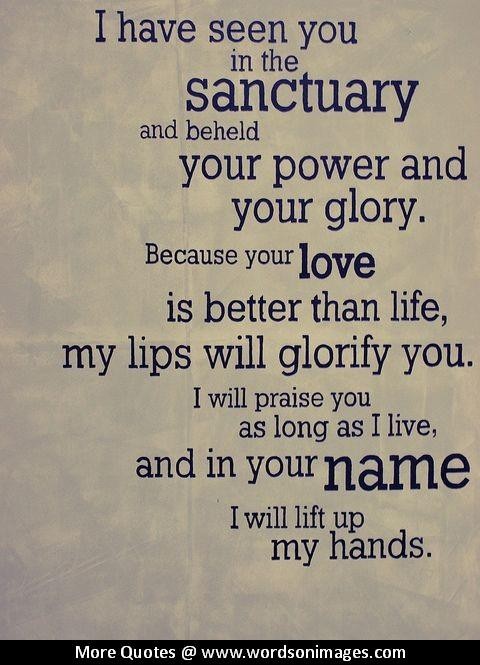 I have seen you
in the
sanctuary
and beheld
your power and
your glory.
Because your love
is better than life,
my lips will glorify you.
I will praise you
as long as I live,
and in your name
I will lift up
my hands.
More Quotes @ www.wordsonimages.com